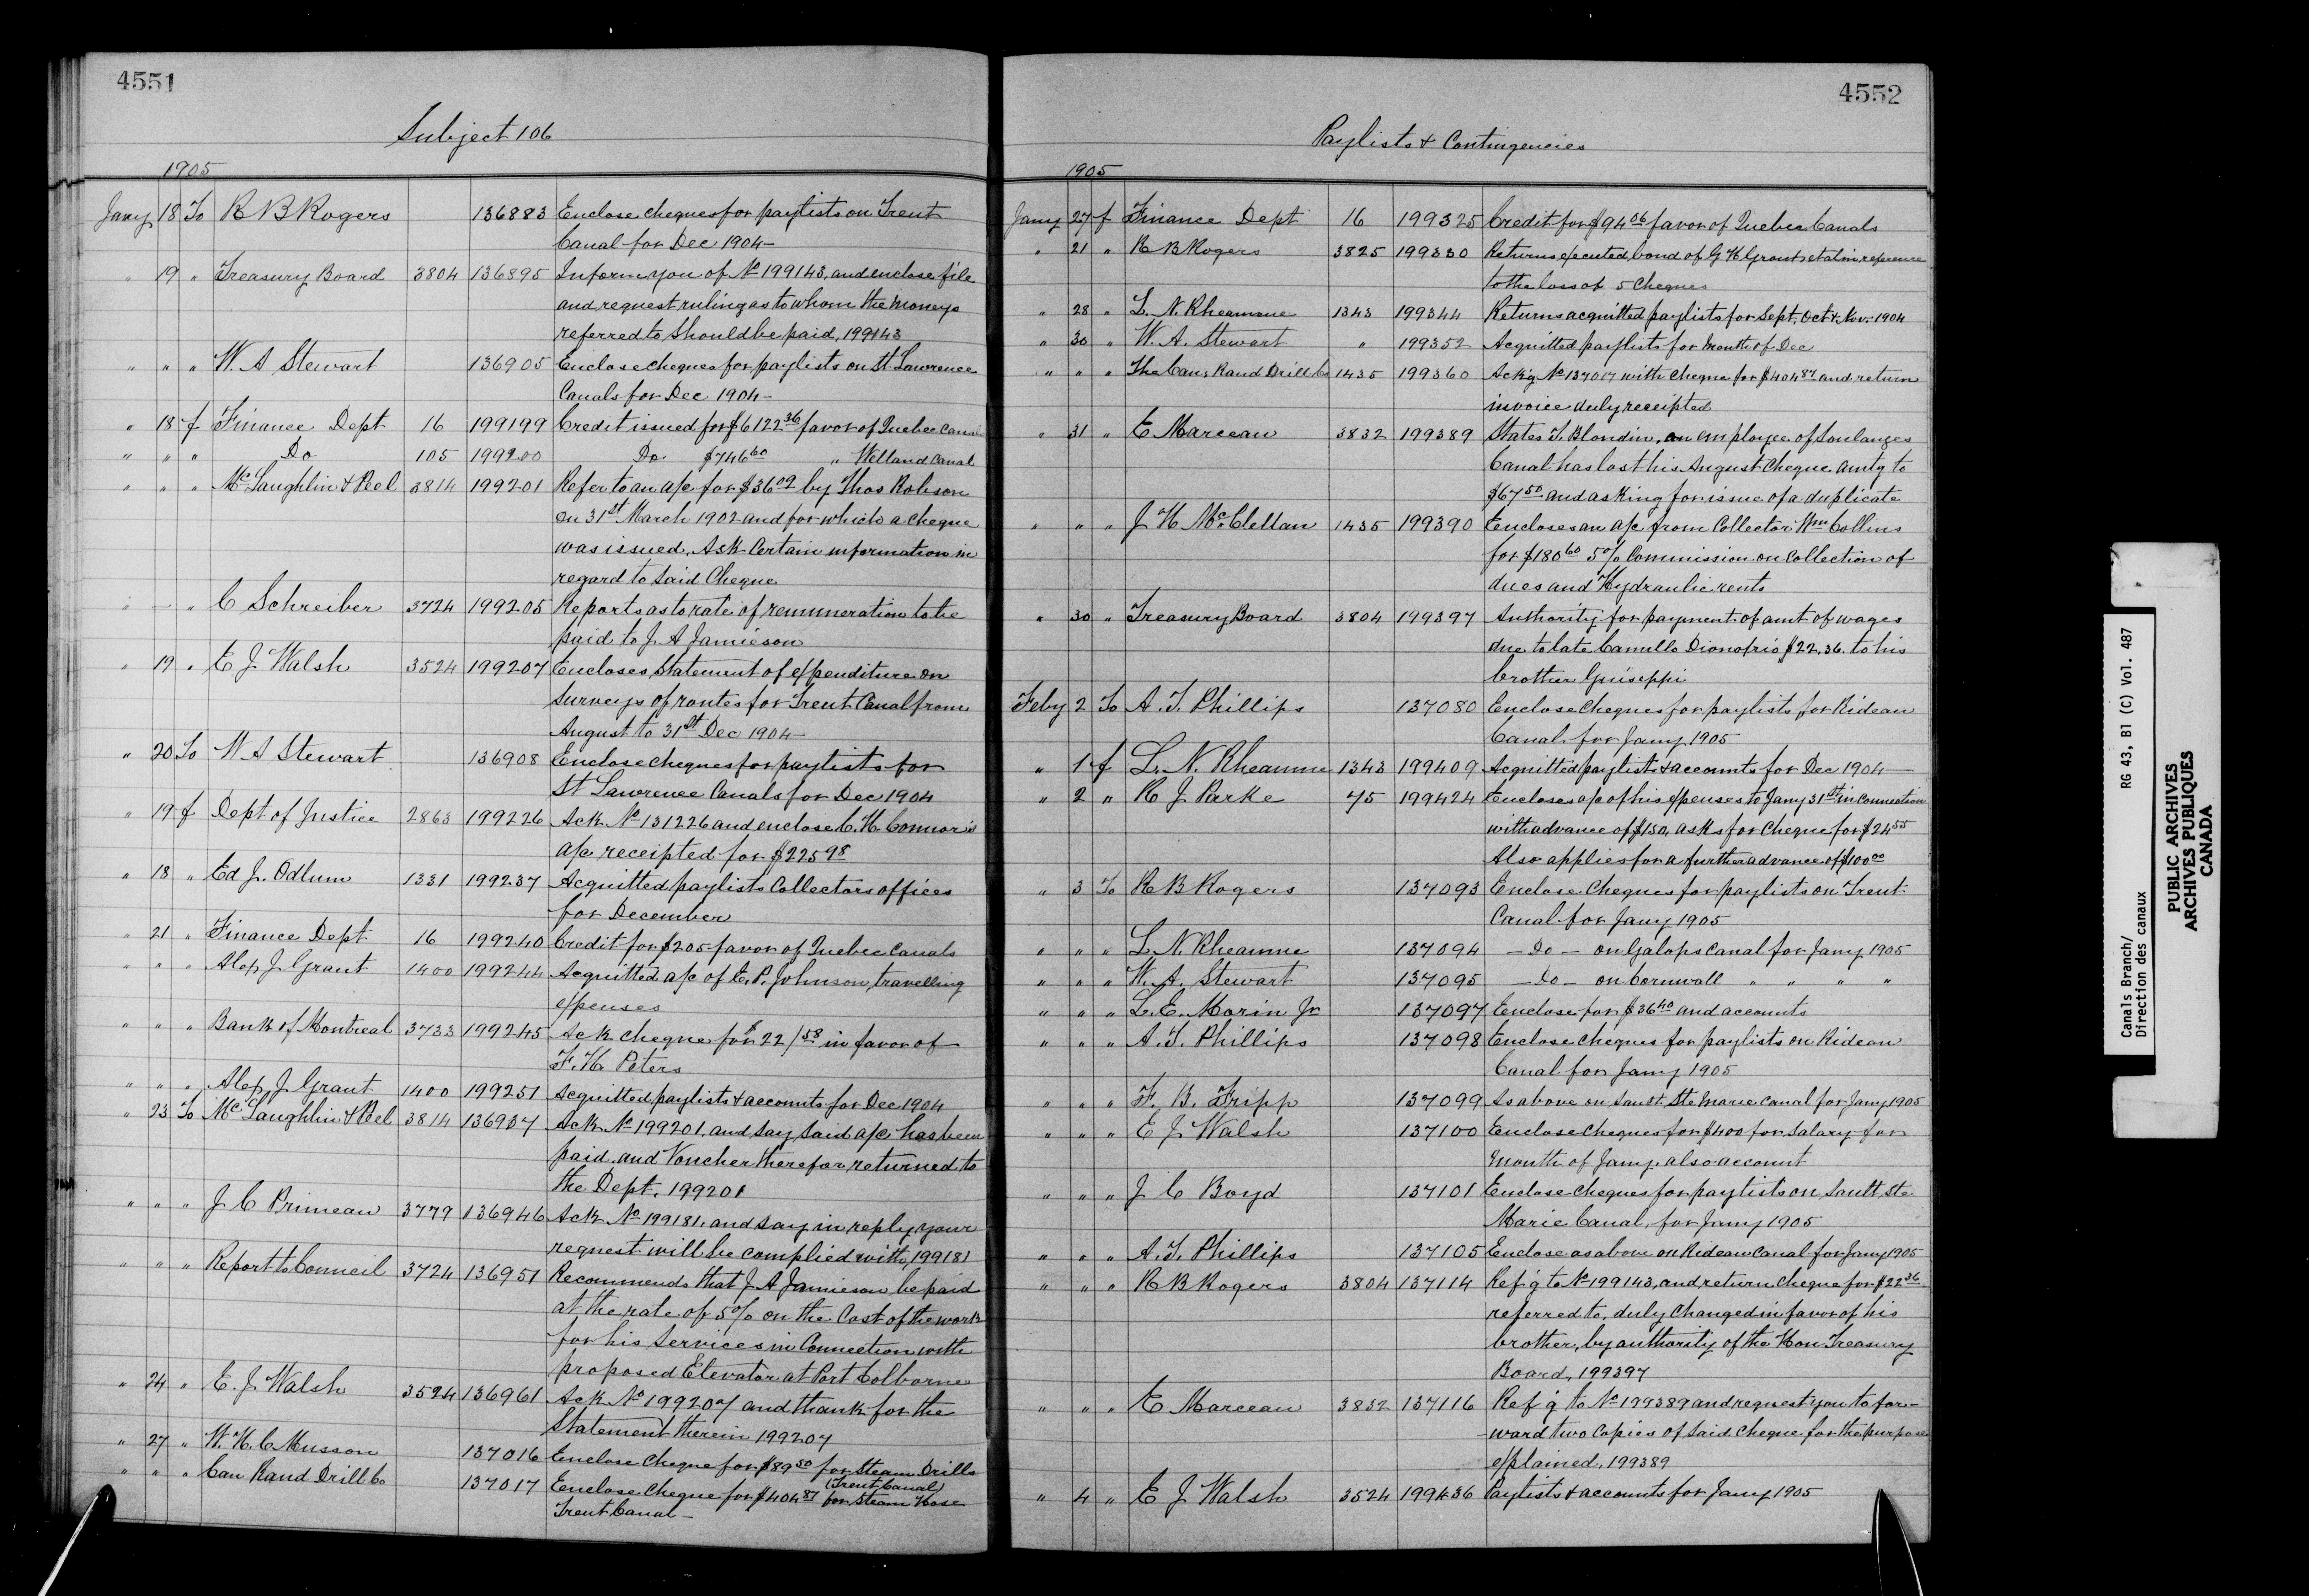 4551
Subject 106
1905
Jany 18 To R B Rogers 136883 Enclose cheques for paylists on Trent
Canal for Dec 1904 –
" 19 " Treasury Board 3804 136895 Inform you of No 199143, and enclose file
and request ruling as to whom the moneys
referred to should be paid, 199143
" " " W. A Stewart 136905 Enclose cheques for paylists on St. Lawrence
Canals for Dec 1904 –
" 18 f Finance Dept 16 199199 Credit issued for $6122 36 favor of Quebec Canals
" " " Do 105 199200 Do $746 60 " Welland Canal
" " " McLaughlin & Peel 3814 199201 Refer to an a/c for $36 09 by Thos Robson
on 31st March 1902 and for which a cheque
was issued. Ask certain information in
regard to said cheque
" – " C Schreiber 3724 199205 Reports as to rate of remuneration to be
paid to J. A Jamieson
" 19 " E J Walsh 3524 199207 Encloses statement of expenditure on
surveys of routes for Trent Canal from
August to 31st Dec 1904 –
" 20 To W A Stewart 136908 Enclose cheques for paylists for
St Lawrence Canals for Dec 1904
" 19 f Dept of Justice 2863 199226 Ack No 131226 and enclose C. H. Connor's
a/c receipted for $225 98
" 18 " Ed J. Odlum 1331 199237 Acquitted paylists Collectors offices
for December
" 21 " Finance Dept 16 199240 Credit for $205 – favor of Quebec Canals
" " " Alex J. Grant 1400 199244 Acquitted a/c of E. P. Johnson, travelling
expenses
" " " Bank of Montreal 3733 199245 Ack cheque for £22/ 58 in favor of
F. H. Peters
" " " Alex J. Grant 1400 199251 Acquitted paylists & accounts for Dec 1904
" 23 To McLaughlin & Peel 3814 136937 Ack No 199201, and say said a/c has been
paid, and Voucher therefor returned to
the Dept. 199201
" " " J C Primeau 3779 136946 Ack No 199181, and say in reply your
request will be complied with, 199181
" " " Report to Council 3724 136951 Recommends that J. A Jamieson be paid
at the rate of 5% on the Cost of the work
for his services in connection with
proposed Elevator at Port Colborne
" 24 " E. J Walsh 3524 136961 Ack No 199207 and thank for the
Statement therein 199207
" 27 " W. H. C Musson 137016 Enclose cheque for $89 50 for Steam Drills
(Trent Canal)
" " " Can Rand Drill Co 137017 Enclose cheque for $404 87 for Steam Hose
Trent Canal –
4552
Paylists & Contingencies
1905
Jany 27 f Finance Dept 16 199325 Credit for $94 06 favor of Quebec Canals
" 21 " R B Rogers 3825 199330 Returns executed bond of G H Grant et al in reference
to the loss of 5 Cheques
" 28 " L. N. Rheaume 1343 199344 Returns acquitted paylists for Sept, Oct & Nov. 1904
" 30 " W. A. Stewart " 199352 Acquitted paylists for month of Dec
" " " The Can. Rand Drill Co 1435 199360 Ack'g No 137017 with cheque for $404 87 and return
invoice duly receipted
" 31 " E Marceau 3832 199389 States T. Blondin, an employee of Soulanges
Canal has lost his August cheque amtg to
$67 50 and asking for issue of a duplicate
" " " J H McClellan 1435 199390 Encloses an a/c from Collector Wm Collins
for $180 60 5% Commission on Collection of
dues and Hydraulic rents
" 30 " Treasury Board 3804 199397 Authority for payment of amt of wages
due to late Camullo Dionofrio $22.36. to his
brother Guiseppi
Feby 2 To A. T. Phillips 137080 Enclose cheques for paylists for Rideau
Canal for Jany 1905
" 1 f L. N. Rheaume 1343 199409 Acquitted paylists & accounts for Dec 1904 –
" 2 " H J Parke 75 199424 Encloses a/c of his expenses to Jany 31st in connection
with advance of $150, asks for cheque for $24 55
Also applies for a further advance of $100 00
" 3 To R B Rogers 137093 Enclose cheques for paylists on Trent
Canal for Jany 1905
" " " L. N. Rheaume 137094 – Do – on Galops Canal for Jany 1905
" " " W. A. Stewart 137095 – Do – on Cornwall " " " "
" " " L. E. Morin Jr 137097 Enclose for $36 40 and accounts
" " " A. T. Phillips 137098 Enclose cheques for paylists on Rideau
Canal for Jany 1905
" " " F. B. Fripp 137099 As above on Sault Ste Marie Canal for Jany 1905
" " " E J Walsh 137100 Enclose cheques for $400 for salary for
month of Jany. also account
" " " J C Boyd 137101 Enclose cheques for paylists on Sault Ste
Marie Canal, for Jany 1905
" " " A. T. Phillips 137105 Enclose as above on Rideau Canal for Jany 1905
" " " R B Rogers 3804 137114 Ref'g to No 199143, and return cheque for $22 36
referred to, duly changed in favor of his
brother, by authority of the Hon Treasury
Board, 199397
" " " E Marceau 3832 137116 Ref'g to No 199389 and request you to for-
ward two copies of said cheque for the purpose
explained, 199389
" 4 " E J Walsh 3524 199436 Paylists & accounts for Jany 1905
Canals Branch/
Direction des canaux
RG 43, B1 (C) Vol. 487
PUBLIC ARCHIVES
ARCHIVES PUBLIQUES
CANADA